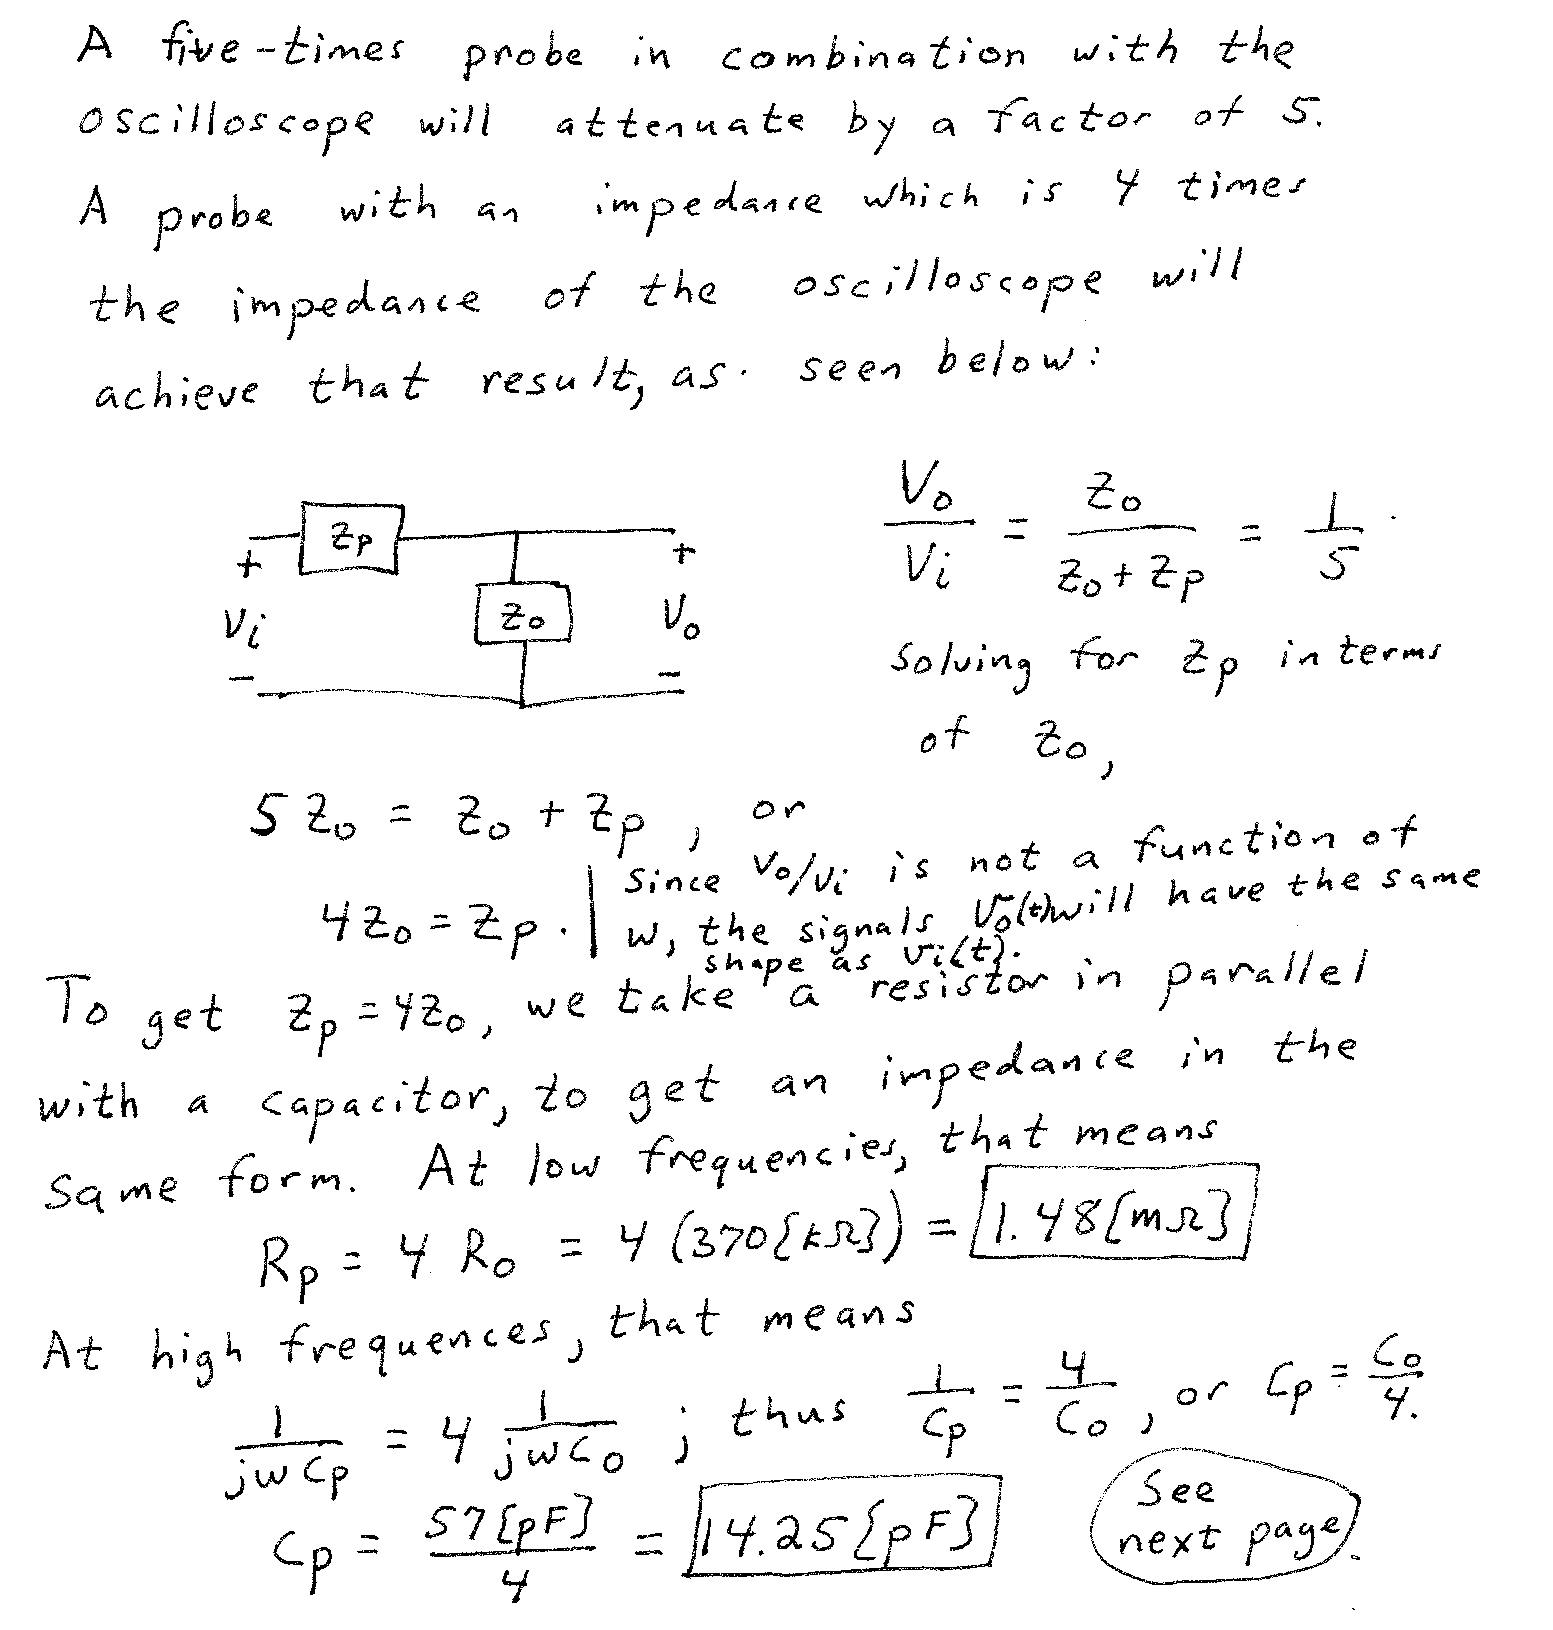 A five-times probe in combination with the
oscilloscope will attenuate by a factor of 5.
A probe with an impedance which is 4 times
the impedance of the oscilloscope will
achieve that result, as seen below:
Zp
+ +
Vi Zo Vo
- -
Vo/Vi = Zo/(Zo + Zp) = 1/5
Solving for Zp in terms
of Zo,
5 Zo = Zo + Zp, or
4Zo = Zp.
Since Vo/Vi is not a function of
w, the signals vo(t) will have the same
shape as vi(t).
To get Zp = 4Zo, we take a resistor in parallel
with a capacitor, to get an impedance in the
same form. At low frequencies, that means
Rp = 4 Ro = 4 (370[kΩ]) = 1.48[mΩ]
At high frequences, that means
1/(jwCp) = 4 1/(jwCo); thus 1/Cp = 4/Co, or Cp = Co/4.
Cp = 57[pF]/4 = 14.25[pF]
See
next page.